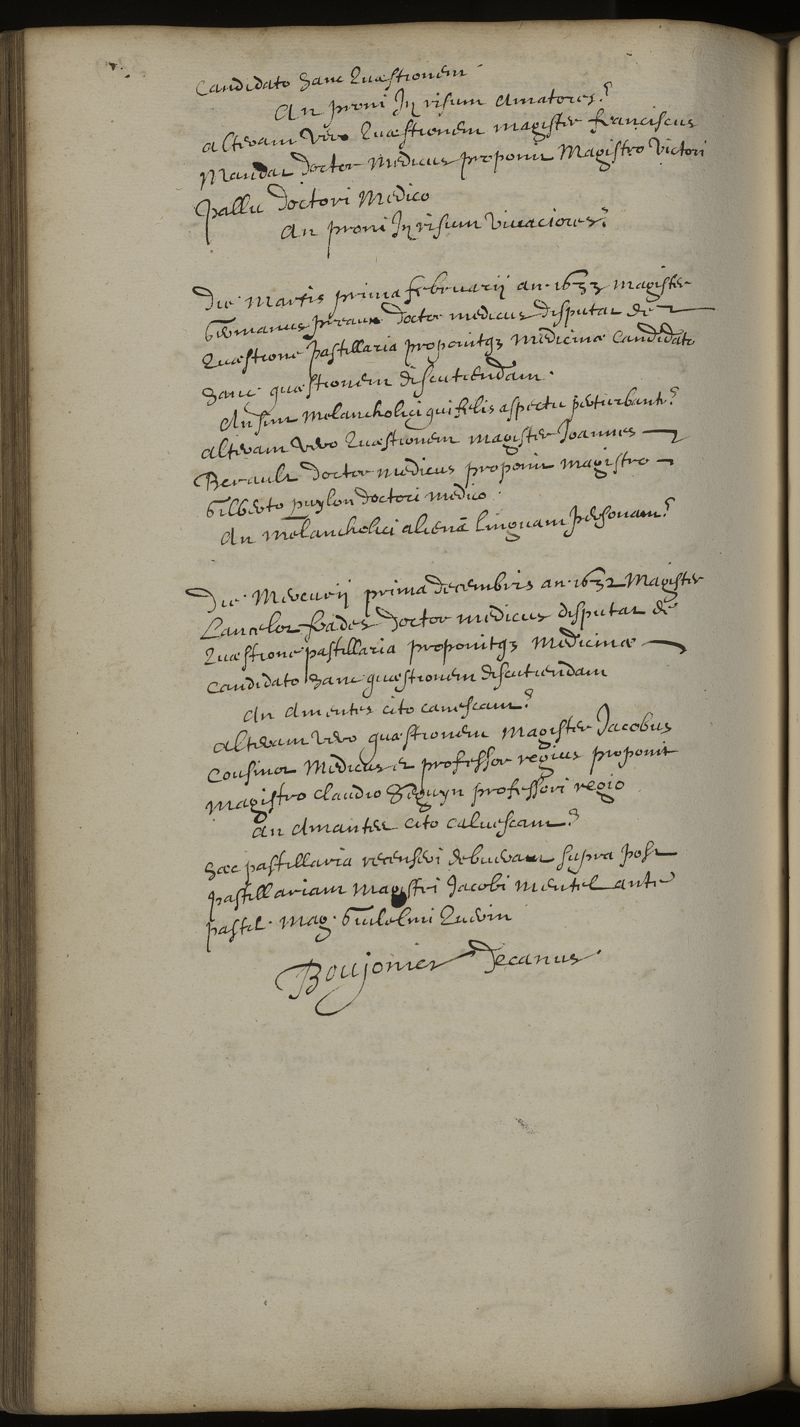 Candidato hanc Quæstionem
An proni In risum Amatores?
alteram vero Quæstionem magister franciscus
Mandat doctor Medicus proponit Magistro Victori
Pallu doctori Medico
An proni In risum Vivaciores?
Die Martis prima februarii an. 1633 magister
Germanus preaux doctor medicus disputat de
Quæstione Pastillaria proponitq3 medicinæ Candidato
hanc quæstionem discutiendam.
An sint Melancholici qui felis aspectu perturbantr?
alteram vero Quæstionem magister Joannes
Berault doctor medicus proponit magistro
Gilberto puylon doctori medico.
An melancholici alienā linguam personant?
Die Mercurii prima decembris an. 1632 Magister
Lancelot frades doctor medicus disputat de
Quæstione pastillaria proponitq3 Medicinæ
Candidato hanc quæstionem discutiendam
An Amentes cito canescant?
alteram vero quæstionem magister Jacobus
Cousinot Medicus et professor regius proponit
magistro claudio Seguyn professori regio
An Amantes cito calvescant?
hæc pastillaria recenseri debuerat supra post
pastillariam magistri Jacobi mentel ante
pastil. mag. Guilelmi Quevin
Boujonier Decanus.